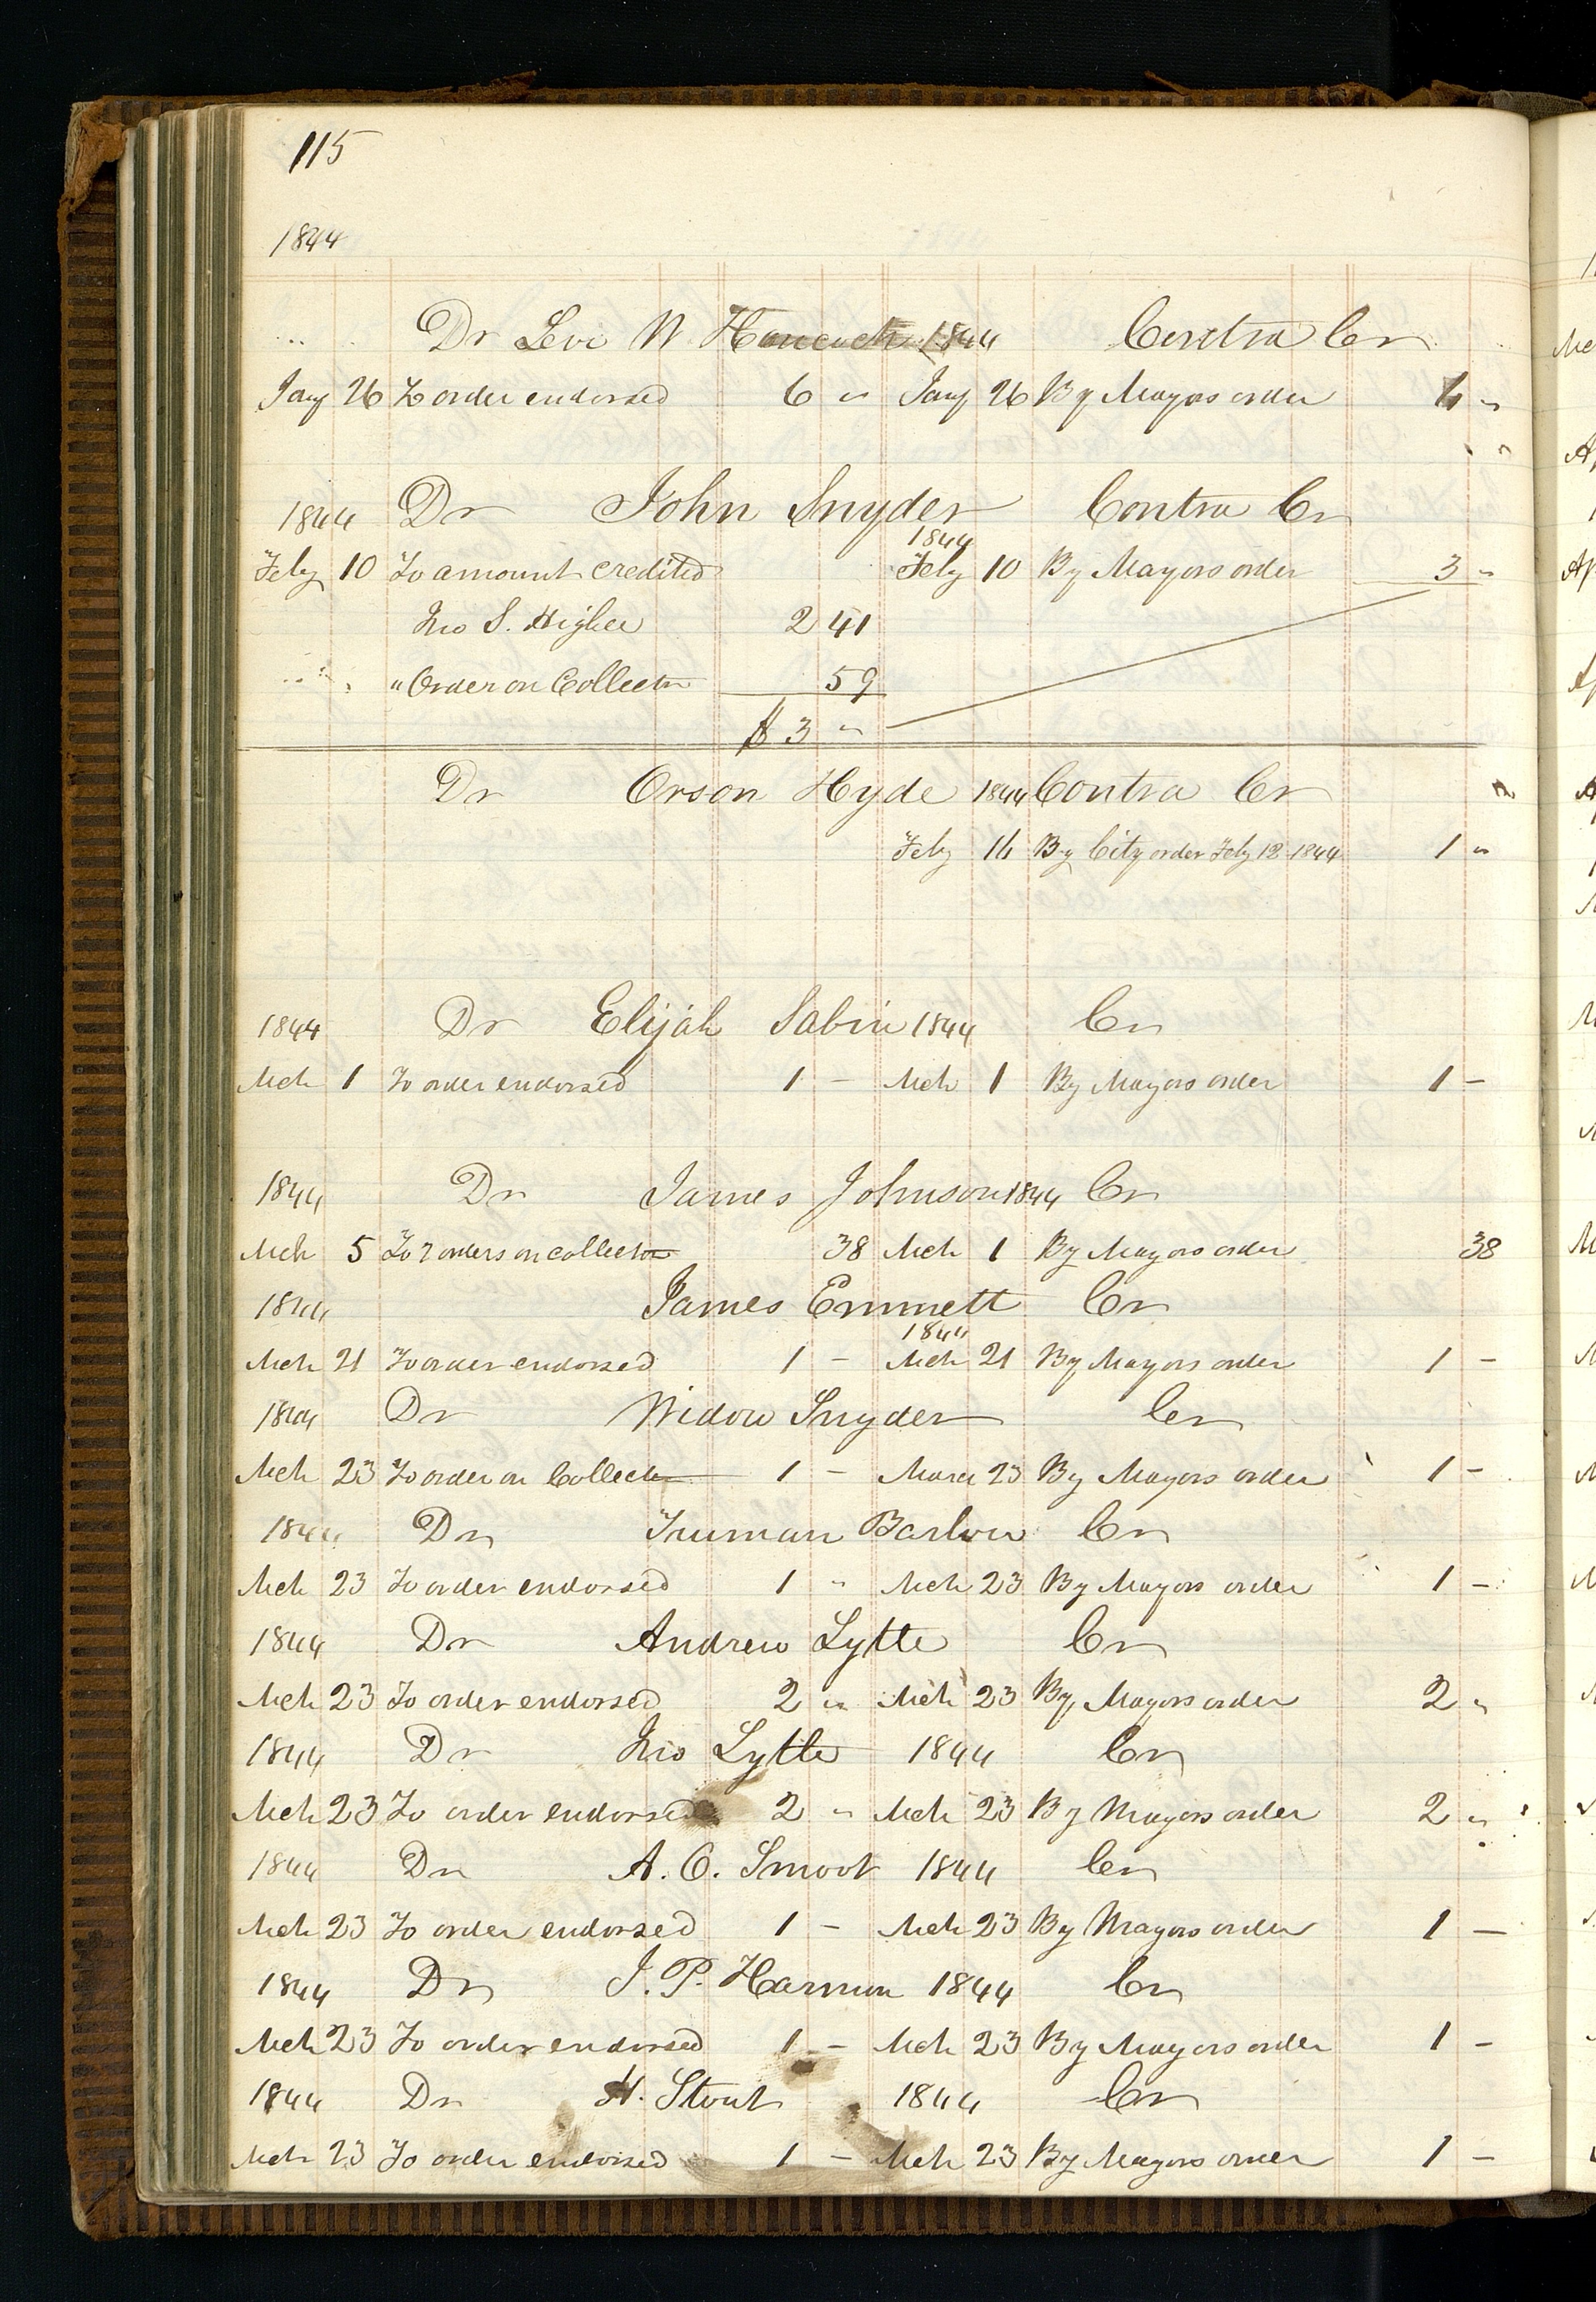 115
1844
Dr Levi W Hancock 1844 Contra Cr
Jany 26 To order endorsed 6 " Jany 26 By Mayors order 6 "
1844 Dr John Snyder Contra Cr
1844
Feby 10 To amount credited Feby 10 By Mayors order 3 "
Jno S. Higbee 2 41
" Order on Collector 59
$3 "
Dr Orson Hyde 1844 Contra Cr
Feby 14 By City order Feby 12 1844 1 "
1844 Dr Elijah Sabin 1844 Cr
Mch 1 To order endorsed 1 - Mch 1 By Mayors order 1 -
1844 Dr James Johnson 1844 Cr
Mch 5 To 2 orders on collector 38 Mch 1 By Mayors order 38
1844 James Emmett Cr
1844
Mch 21 To order endorsed 1 - Mch 21 By Mayors order 1 -
1844 Dr Widow Snyder Cr
Mch 23 To order on Collector 1 - March 23 By Mayors order 1 -
1844 Dr Truman Barlow Cr
Mch 23 To order endorsed 1 " Mch 23 By Mayors order 1 -
1844 Dr Andrew Lytle Cr
Mch 23 To order endorsed 2 " Mch 23 By Mayors order 2 "
1844 Dr Jno Lytle 1844 Cr
Mch 23 To order endorsed 2 " Mch 23 By Mayors order 2 "
1844 Dr A. O. Smoot 1844 Cr
Mch 23 To order endorsed 1 - Mch 23 By Mayors order 1 -
1844 Dr J. P. Harmon 1844 Cr
Mch 23 To order endorsed 1 - Mch 23 By Mayors order 1 -
1844 Dr H. Stout 1844 Cr
Mch 23 To order endorsed 1 - Mch 23 By Mayors order 1 -